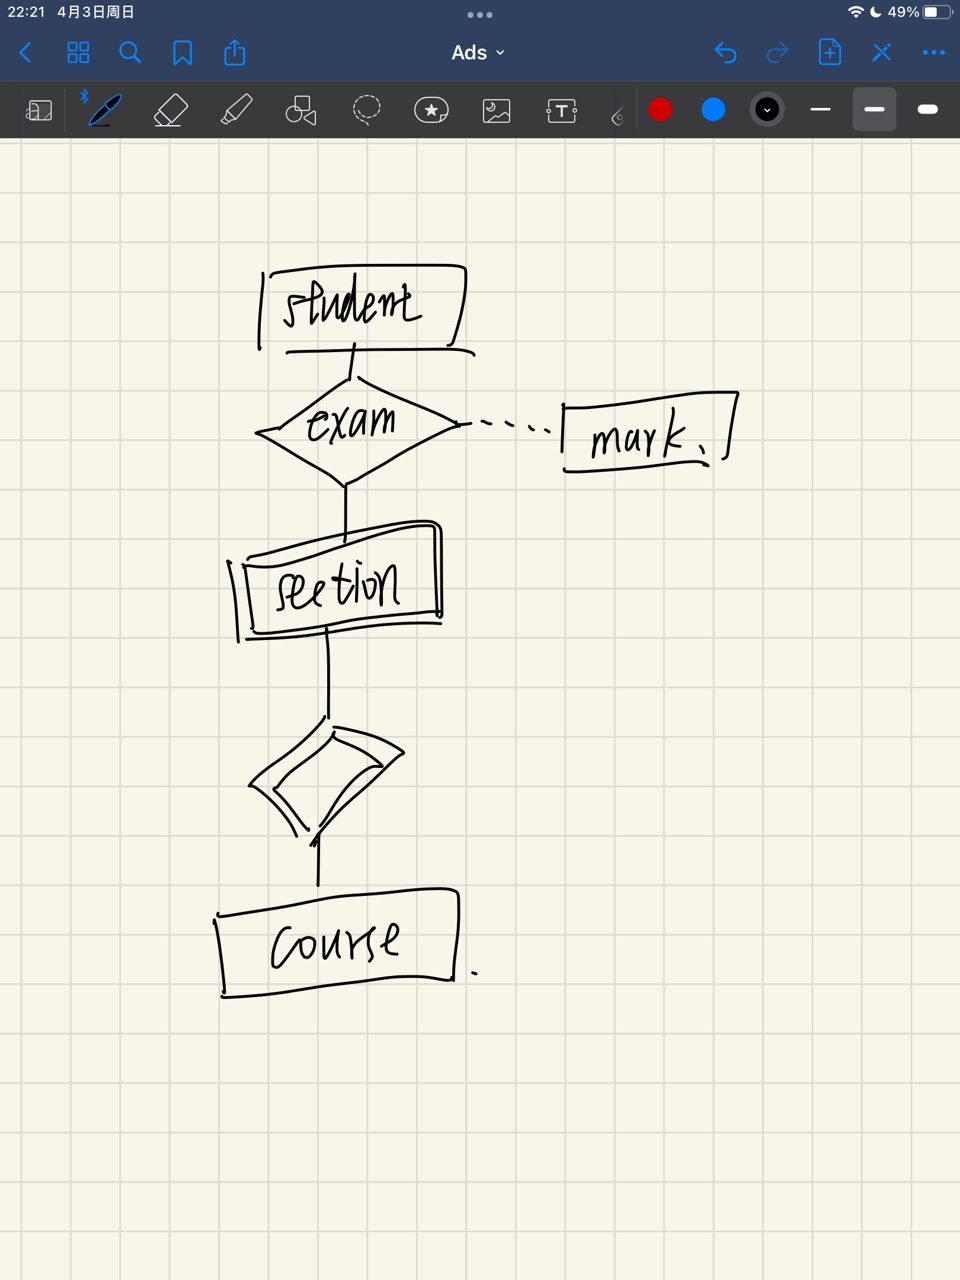 22:21 4月3日周日
49%
Ads
T
student
exam
mark.
section
course.